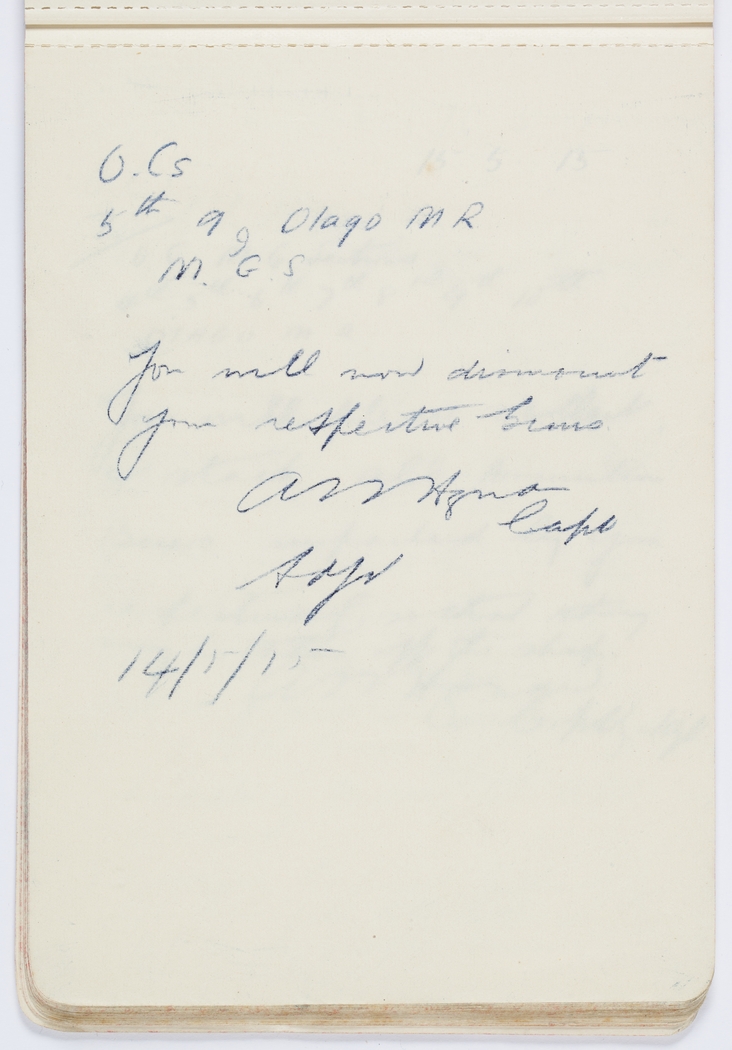 O.Cs
5th 9 Otago M R
M. G. S
You will now dismount
your respective Guns
Capt
Adjt
14/5/15